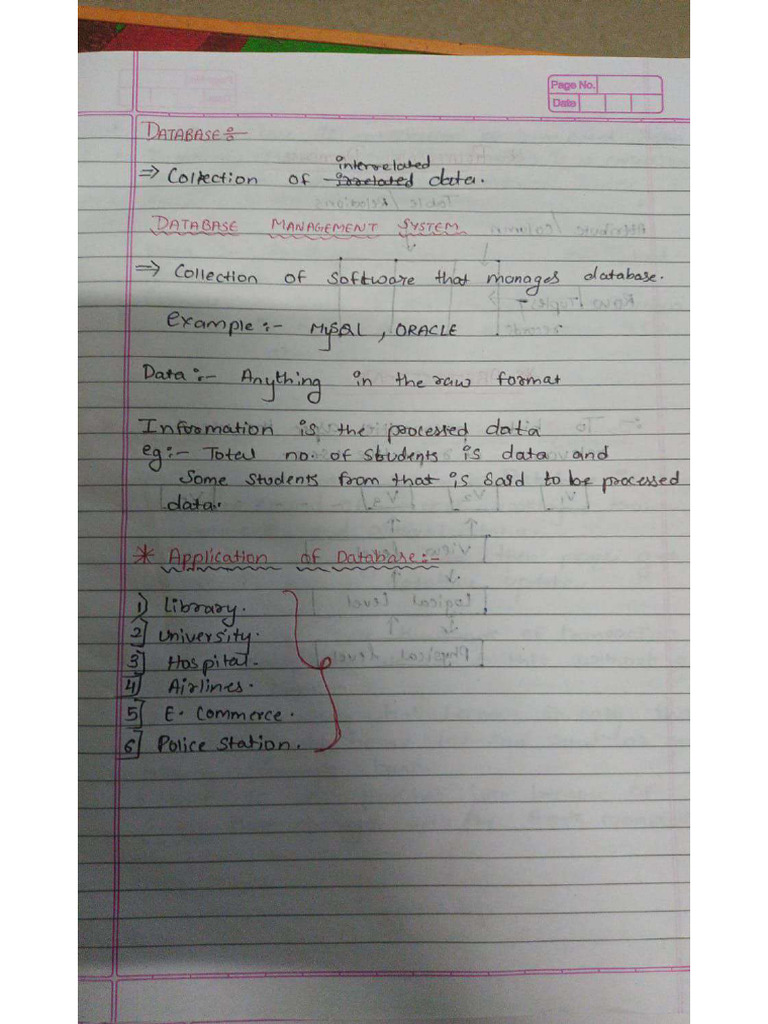 Page No.
Date
DATABASE:-
⇒ Collection of interrelated data.
DATABASE MANAGEMENT SYSTEM
⇒ Collection of software that manages database.
Example:- MySQL, ORACLE
Data:- Anything in the raw format
Information is the processed data
eg:- Total no. of students is data and
Some students from that is said to be processed
data.
* Application of Database:-
1) Library.
2) University.
3) Hospital.
4) Airlines.
5) E. Commerce.
6) Police Station.